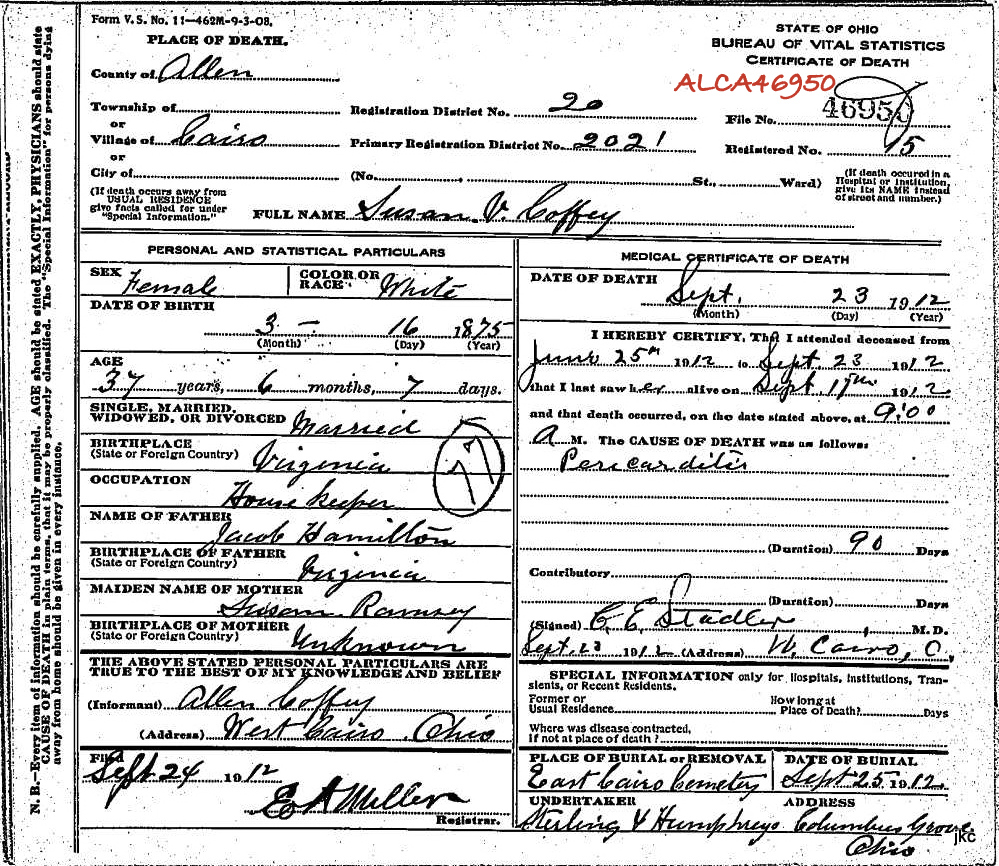 Form V. S. No. 11—462M-9-3-08.
PLACE OF DEATH.
STATE OF OHIO
BUREAU OF VITAL STATISTICS
CERTIFICATE OF DEATH
County of Allen
ALCA46950
Township of
or
Registration District No. 20
File No. 46950
Village of Cairo
or
Primary Registration District No. 2021
Registered No. 15
City of (No. , St., Ward)
(If death occured in a Hospital or Institution, give its NAME instead of street and number.)
(If death occurs away from USUAL RESIDENCE give facts called for under "Special Information.")
FULL NAME Susan V. Coffey
PERSONAL AND STATISTICAL PARTICULARS
SEX Female
COLOR OR RACE White
DATE OF BIRTH
3 — 16 1875
(Month) (Day) (Year)
AGE
37 years, 6 months, 7 days.
SINGLE, MARRIED,
WIDOWED, OR DIVORCED Married
BIRTHPLACE
(State or Foreign Country) Virginia
77
OCCUPATION
House keeper
NAME OF FATHER
Jacob Hamilton
BIRTHPLACE OF FATHER
(State or Foreign Country) Virginia
MAIDEN NAME OF MOTHER
Susan Ramsey
BIRTHPLACE OF MOTHER
(State or Foreign Country) Unknown
THE ABOVE STATED PERSONAL PARTICULARS ARE
TRUE TO THE BEST OF MY KNOWLEDGE AND BELIEF
(Informant) Allen Coffey
(Address) West Cairo Ohio
Filed
Sept 24 1912
E A Miller
Registrar.
MEDICAL CERTIFICATE OF DEATH
DATE OF DEATH
Sept. 23 1912
(Month) (Day) (Year)
I HEREBY CERTIFY, That I attended deceased from
June 25th 1912 to Sept 23 1912
that I last saw her alive on Sept 17th 1912
and that death occurred, on the date stated above, at 9:00
A M. The CAUSE OF DEATH was as follows:
Pericarditis
(Duration) 90 Days
Contributory
(Duration) Days
(Signed) C. E. Stadler, M. D.
Sept. 23 1912 (Address) W. Cairo, O.
SPECIAL INFORMATION only for Hospitals, Institutions, Transients, or Recent Residents.
Former or
Usual Residence
How long at
Place of Death? Days
Where was disease contracted,
If not at place of death?
PLACE OF BURIAL or REMOVAL
East Cairo Cemetery
DATE OF BURIAL
Sept 25 1912
UNDERTAKER
Sterling & Humphreys
ADDRESS
Columbus Grove
Ohio
jkc
N. B.—Every item of information should be carefully supplied. AGE should be stated EXACTLY. PHYSICIANS should state
CAUSE OF DEATH in plain terms, that it may be properly classified. The "Special Information" for persons dying
away from home should be given in every instance.